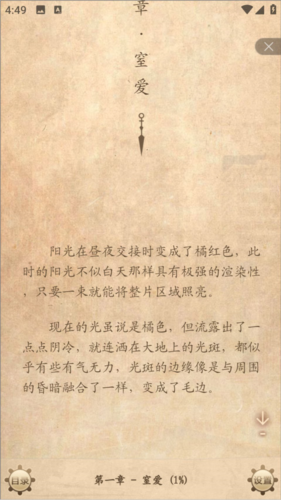 4:49
章
·
窒
爱
阳光在昼夜交接时变成了橘红色，此
时的阳光不似白天那样具有极强的渲染性
，只要一束就能将整片区域照亮。
现在的光虽说是橘色，但流露出了一
点点阴冷，就连洒在大地上的光斑，都似
乎有些有气无力，光斑的边缘像是与周围
的昏暗融合了一样，变成了毛边。
目录
第一章 - 窒爱 (1%)
设置